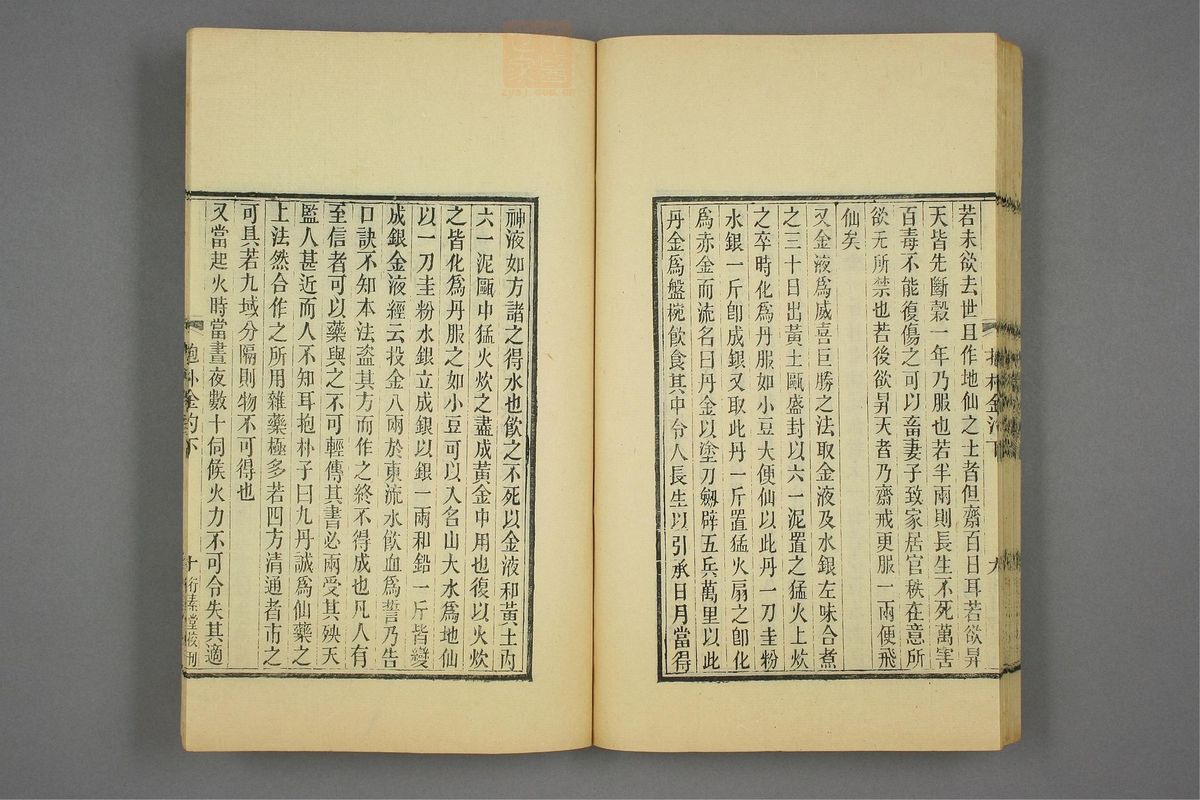 若未欲去世且作地仙之士者但齋百日耳若欲昇
天皆先斷穀一年乃服也若半兩則長生不死萬害
百毒不能復傷之可以畜妻子致家居官秩在意所
欲无所禁也若後欲昇天者乃齋戒更服一兩便飛
仙矣
又金液爲威喜巨勝之法取金液及水銀左味合煮
之三十日出黃土甌盛封以六一泥置之猛火上炊
之卒時化爲丹服如小豆大便仙以此丹一刀圭粉
水銀一斤卽成銀又取此丹一斤置猛火扇之卽化
爲赤金而流名曰丹金以塗刀劒辟五兵萬里以此
丹金爲盤椀飮食其中令人長生以引承日月當得
神液如方諸之得水也飮之不死以金液和黃土內
六一泥甌中猛火炊之盡成黃金中用也復以火炊
之皆化爲丹服之如小豆可以入名山大水爲地仙
以一刀圭粉水銀立成銀以銀一兩和鉛一斤皆變
成銀金液經云投金八兩於東流水飮血爲誓乃告
口訣不知本法盜其方而作之終不得成也凡人有
至信者可以藥與之不可輕傳其書必兩受其殃天
監人甚近而人不知耳抱朴子曰九丹誠爲仙藥之
上法然合作之所用雜藥極多若四方清通者市之
可具若九域分隔則物不可得也
又當起火時當晝夜數十伺候火力不可令失其適